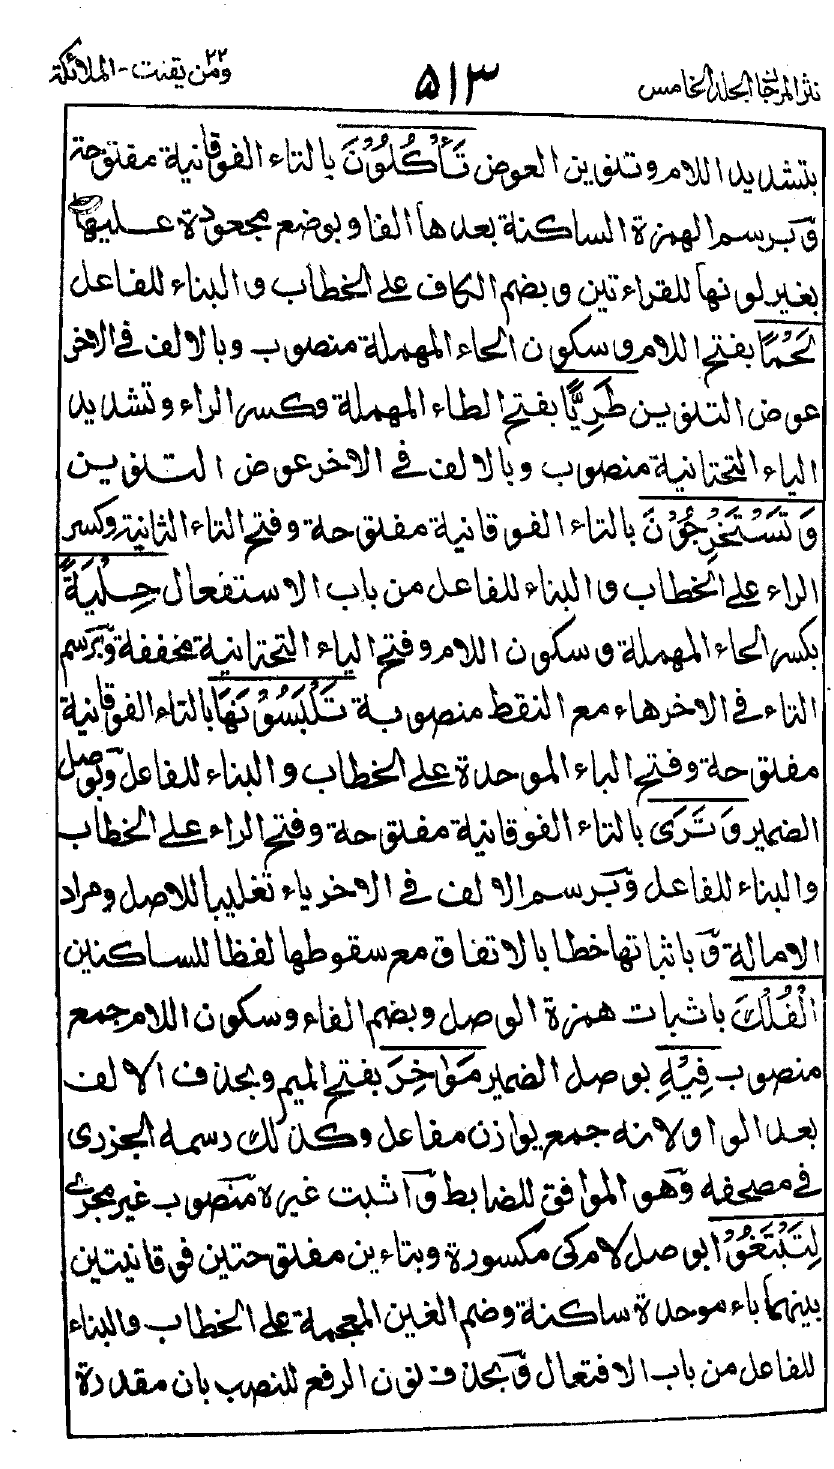 نثر المرجان الجلد الخامس ۵۱۳ ۲۲ ومن يقنت - الملائكة
بتشديد اللام وتنوين العوض تَأْكُلُوْنَ بالتاء الفوقانية مفتوحة
وَبرسم الهمزة الساكنة بعدها الفا وبوضع مجعودة عليها
بغير لونها للقراءتين وبضم الكاف على الخطاب والبناء للفاعل
لَحْمًا بفتح اللام وسكون الحاء المهملة منصوب وبالالف في الاخر
عوض التنوين طَرِيًّا بفتح الطاء المهملة وكسر الراء وتشديد
الياء التحتانية منصوب وبالالف في الاخر عوض التنوين
وَتَسْتَخْرِجُوْنَ بالتاء الفوقانية مفتوحة وفتح التاء الثانية وكسر
الراء على الخطاب والبناء للفاعل من باب الاستفعال حِلْيَةً
بكسر الحاء المهملة وسكون اللام وفتح الياء التحتانية مخففة وَبرسم
التاء في الاخر هاء مع النقط منصوبة تَلْبَسُوْنَهَا بالتاء الفوقانية
مفتوحة وفتح الباء الموحدة على الخطاب والبناء للفاعل وَبوصل
الضمير وَتَرَى بالتاء الفوقانية مفتوحة وفتح الراء على الخطاب
والبناء للفاعل وَبرسم الالف في الاخر ياء تغليبا للاصل ومراد
الامالة وَباثباتها خطا بالاتفاق مع سقوطها لفظا للساكنين
الْفُلْكَ باثبات همزة الوصل وبضم الفاء وسكون اللام جمع
منصوب فِيْهِ بوصل الضمير مَوَاخِرَ بفتح الميم وبحذف الالف
بعد الواو لانه جمع يوازن مفاعل وكذلك رسمه الجزرى
في مصحفه وَهو الموافق للضابط وَاثبت غيره مَنصوب غير مجرى
لِتَبْتَغُوْا بوصل لام كى مكسورة وبتاءين مفتوحتين فوقانيتين
بينهما باء موحدة ساكنة وضم الغين المعجمة على الخطاب والبناء
للفاعل من باب الافتعال وَبحذف نون الرفع للنصب بان مقدرة